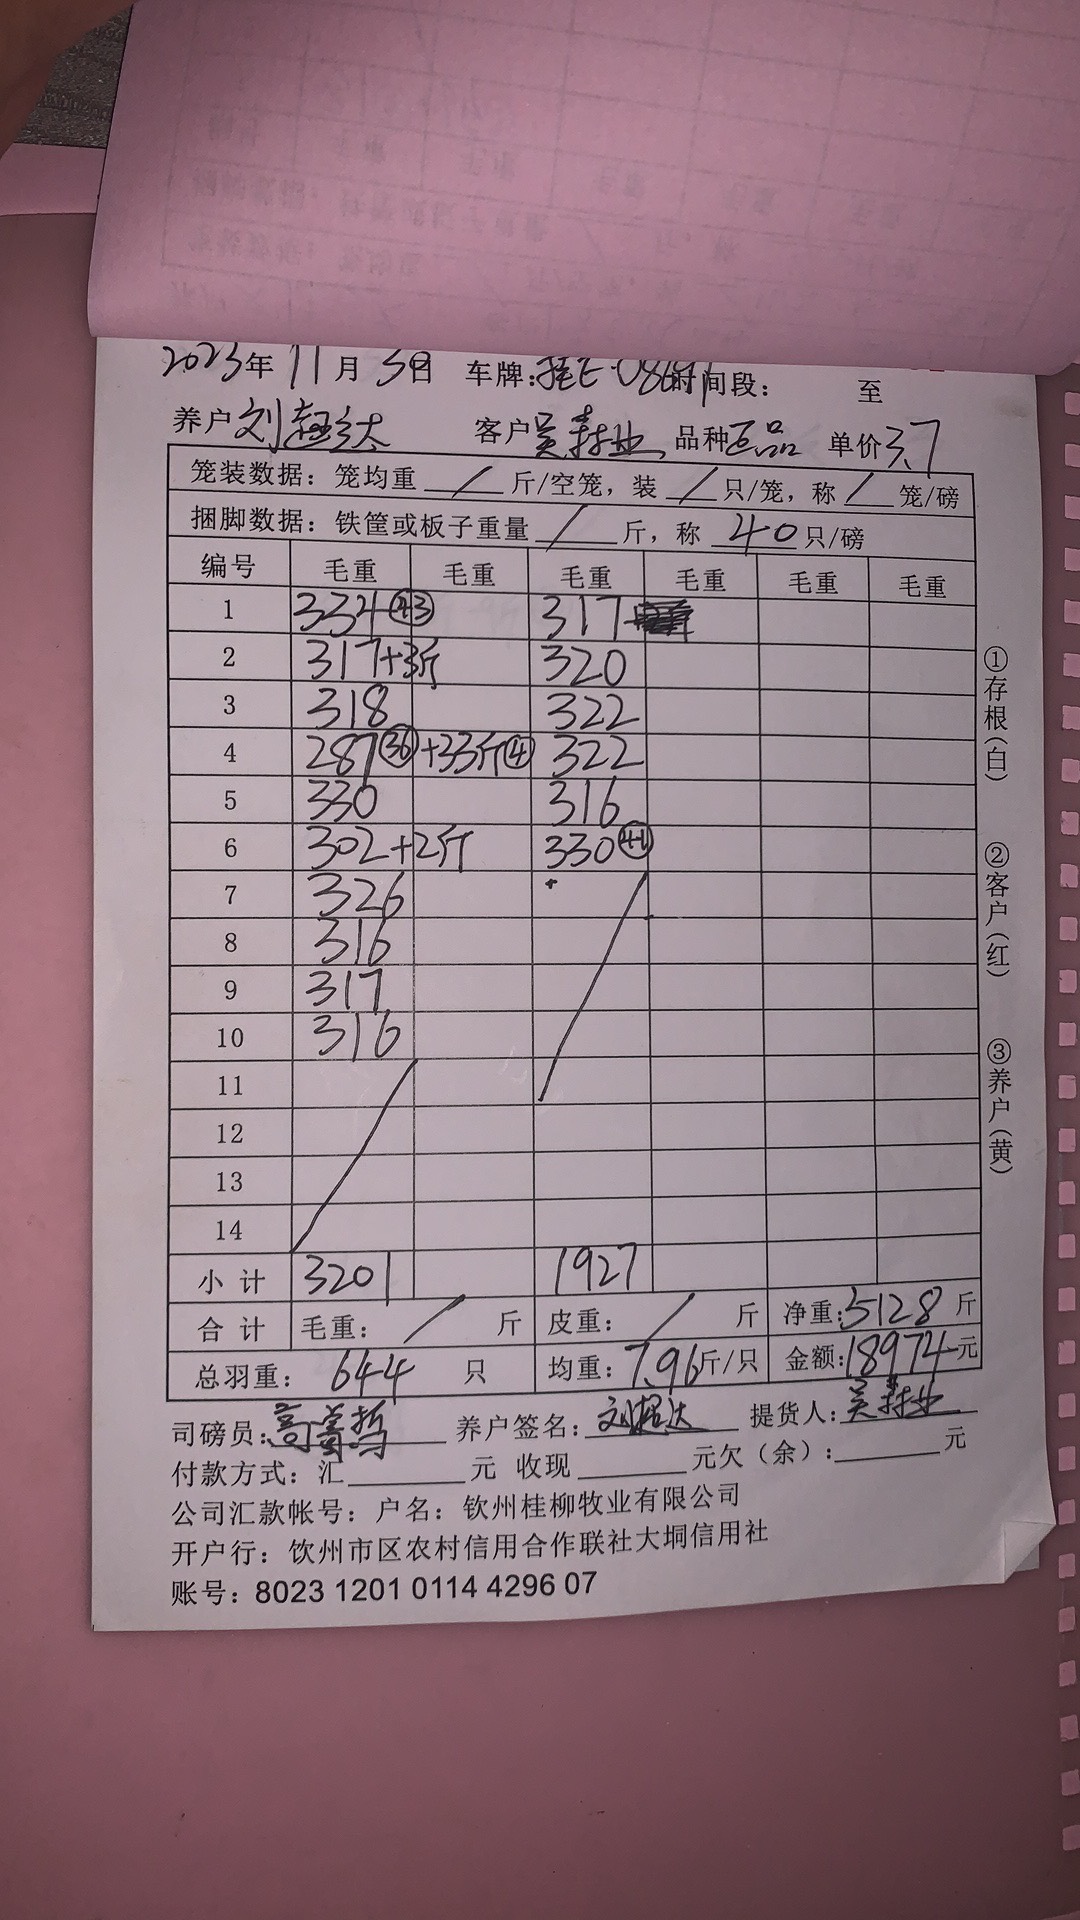 2023年 11月 3日 车牌: 时间段: 至
养户 刘超达 客户 吴 业 品种 正品 单价 3.7
笼装数据：笼均重 / 斤/空笼，装 / 只/笼，称 / 笼/磅
捆脚数据：铁筐或板子重量 / 斤，称 40 只/磅
编号 毛重 毛重 毛重 毛重 毛重 毛重
1 334 ㊸ 317
2 317+3斤 320
3 318 322
4 287 ㊱ +33斤 ④ 322
5 330 316
6 302+2斤 330 ㊶
7 326
8 316
9 317
10 316
11
12
13
14
小 计 3201 1927
合 计 毛重: / 斤 皮重: / 斤 净重: 5128 斤
总羽重: 644 只 均重: 7.96 斤/只 金额: 18974 元
司磅员: 养户签名: 刘超达 提货人: 吴 业
付款方式: 汇 元 收现 元欠（余）: 元
公司汇款帐号: 户名: 钦州桂柳牧业有限公司
开户行: 饮州市区农村信用合作联社大垌信用社
账号: 8023 1201 0114 4296 07
①存根(白)
②客户(红)
③养户(黄)